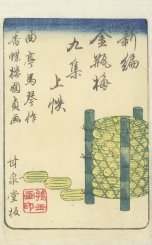 新編
金瓶梅
九集
上帙
曲亭馬琴作
香蝶楼國貞画
甘泉堂板